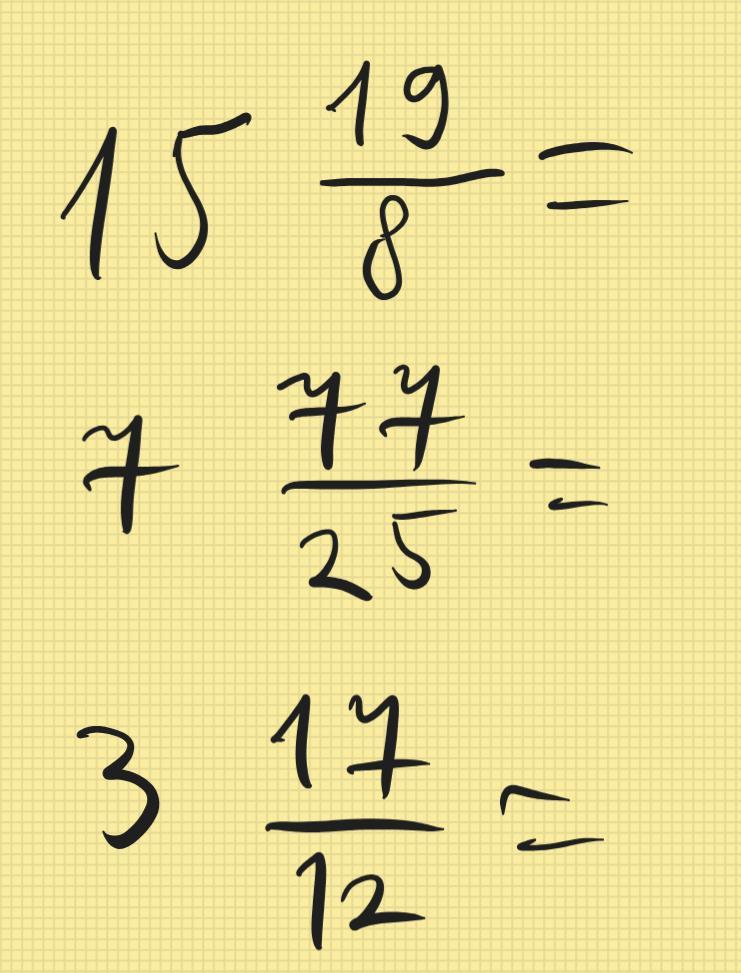 15 19/8 =
7 77/25 =
3 17/12 =